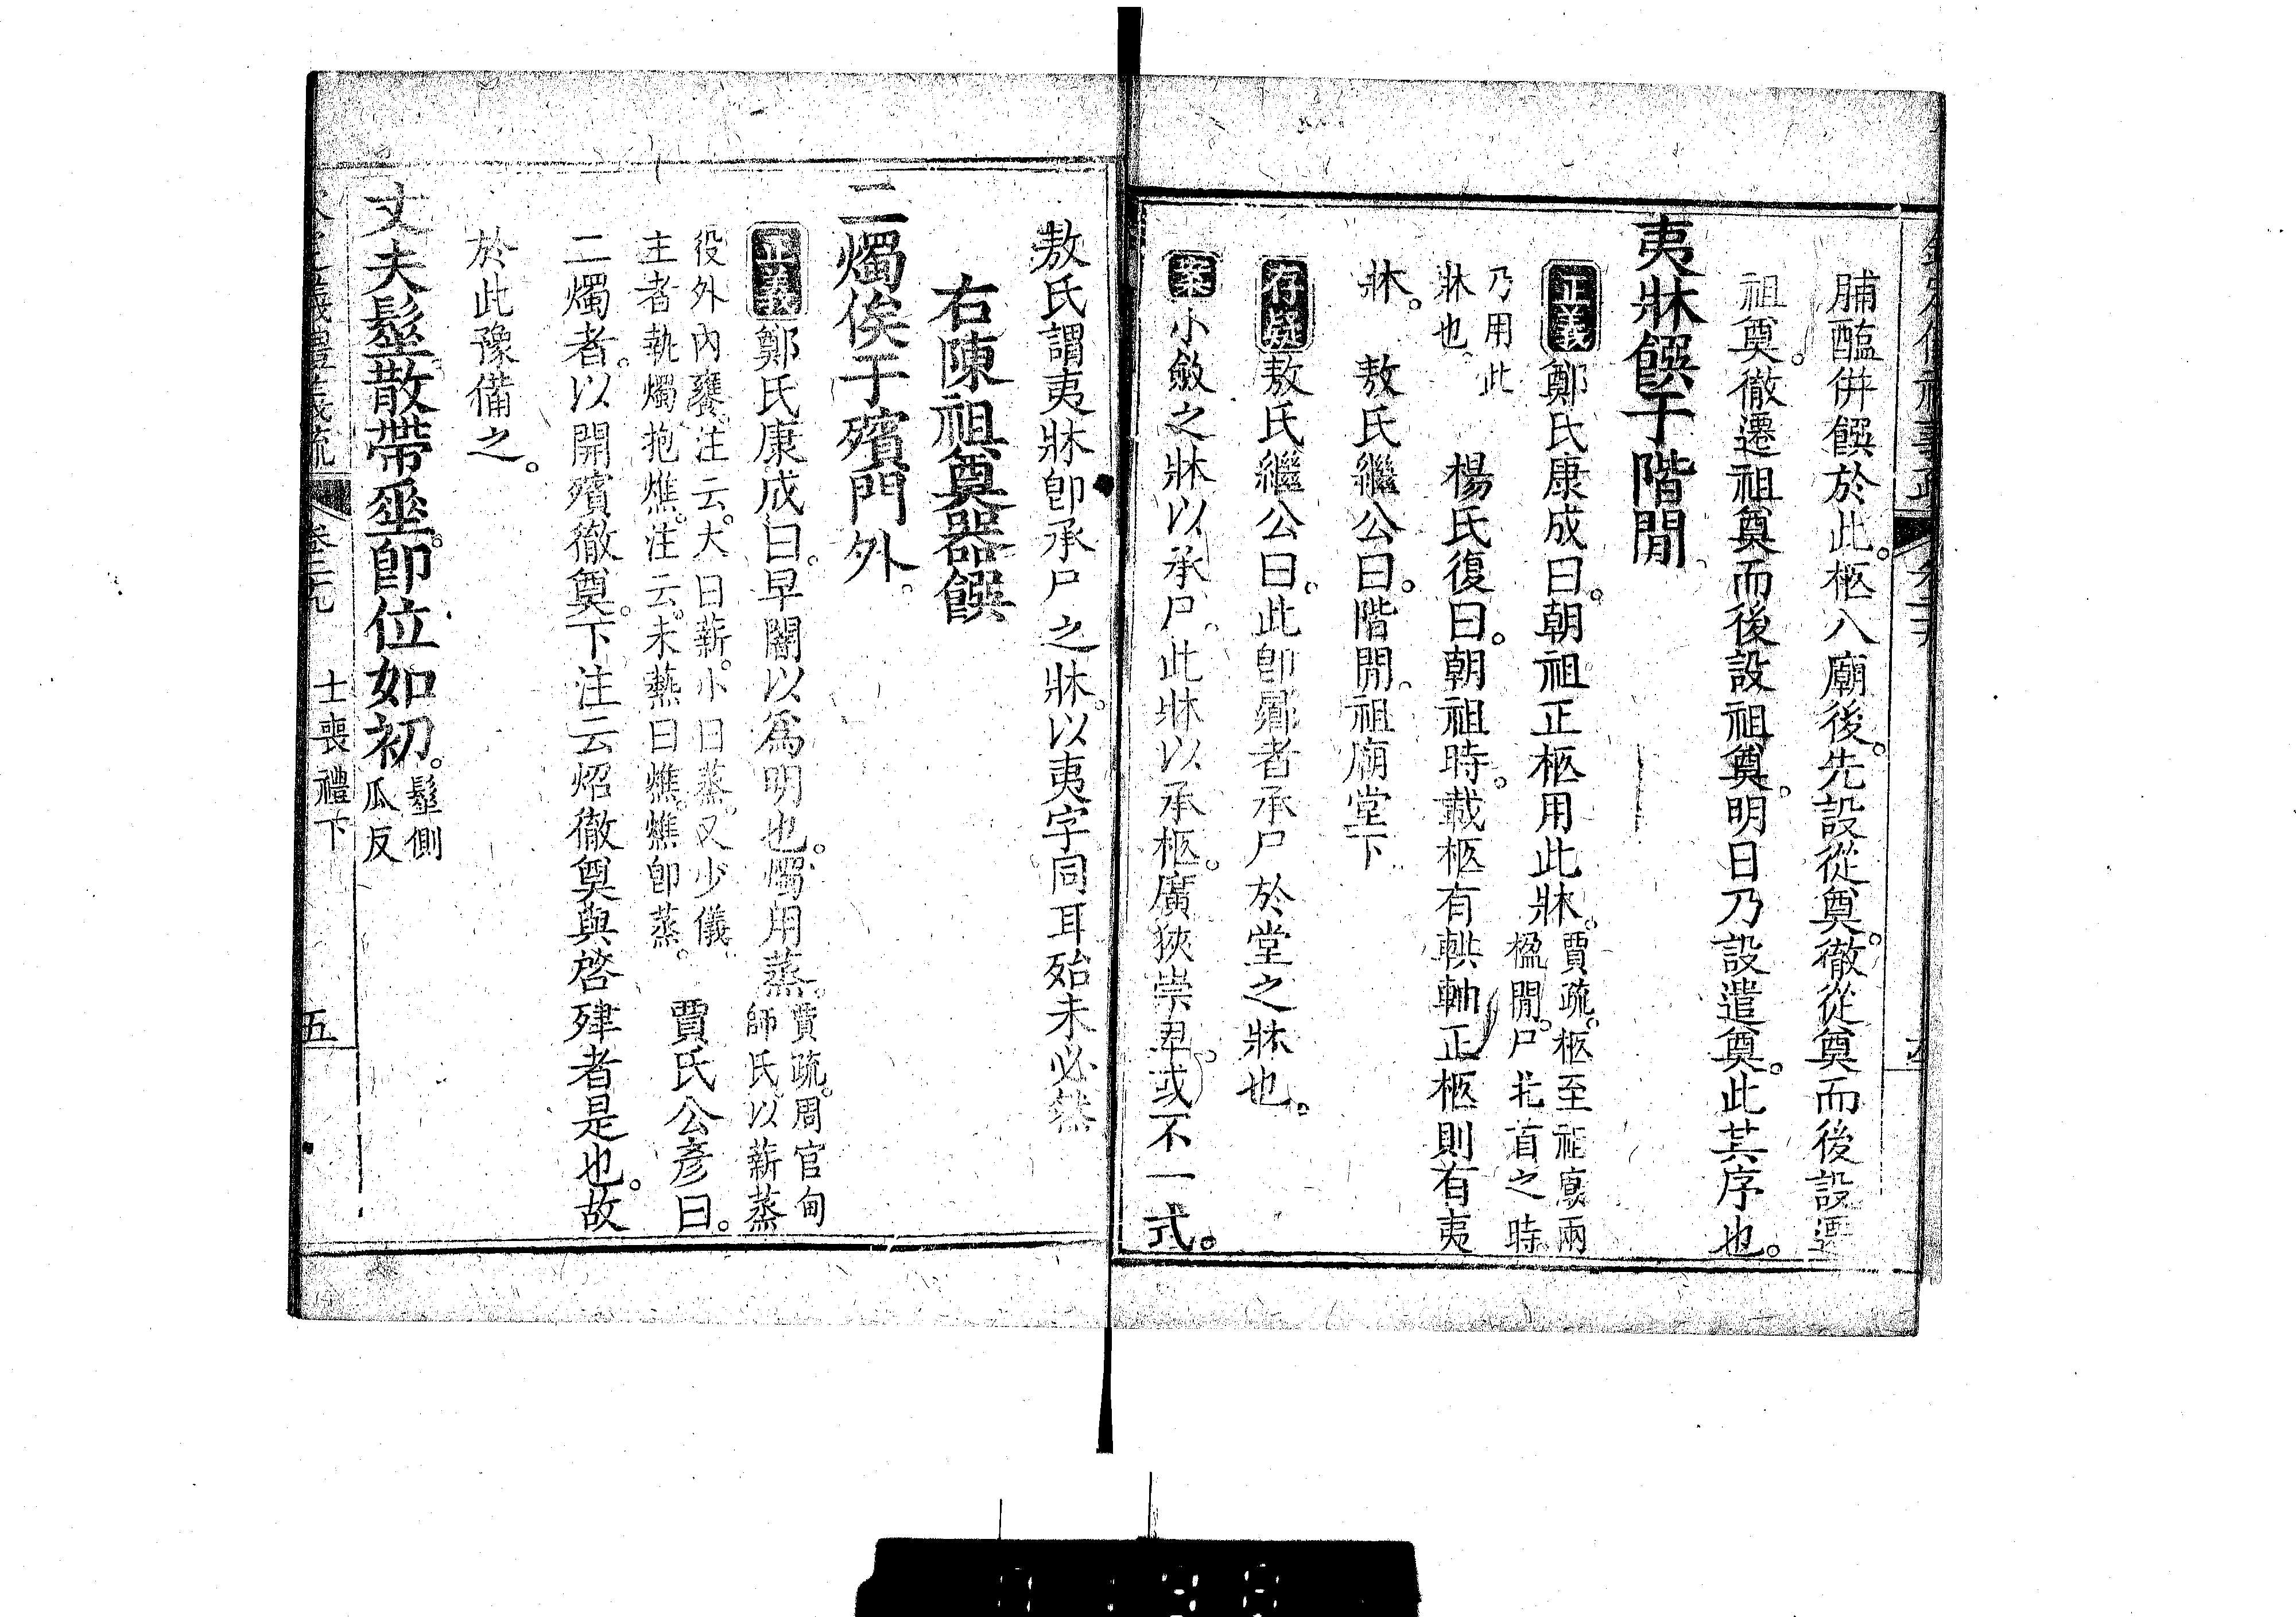 脯醢併饌於此。柩入廟後。先設從奠。徹從奠而後設遷
祖奠。徹遷祖奠而後設祖奠。明日乃設遣奠。此其序也。
夷牀饌于階閒
正義鄭氏康成曰。朝祖正柩用此牀。賈疏。柩至祖廟兩
楹閒。尸北首之時。
乃用此
牀也。
楊氏復曰。朝祖時。載柩有輁軸。正柩則有夷
牀。 敖氏繼公曰。階閒。祖廟堂下
存疑敖氏繼公曰。此卽鄉者承尸於堂之牀也。
案小斂之牀以承尸。此牀以承柩。廣狹崇卑。或不一式。
敖氏謂夷牀卽承尸之牀。以夷字同耳殆未必然
右陳祖奠器饌
二燭俟于殯門外。
正義鄭氏康成曰。早闇以爲明也。燭用蒸。賈疏。周官甸
師氏。以薪蒸
役外內饔。注云。大曰薪。小曰蒸。又少儀、
主者執燭抱燋。注云。未爇曰燋。燋卽蒸。
賈氏公彥曰。
二燭者。以開殯徹奠。下注云炤徹奠與啓肂者是也。故
於此豫備之。
丈夫髽散帶垂。卽位如初。髽側
瓜反
卷二十九 士喪禮下 五